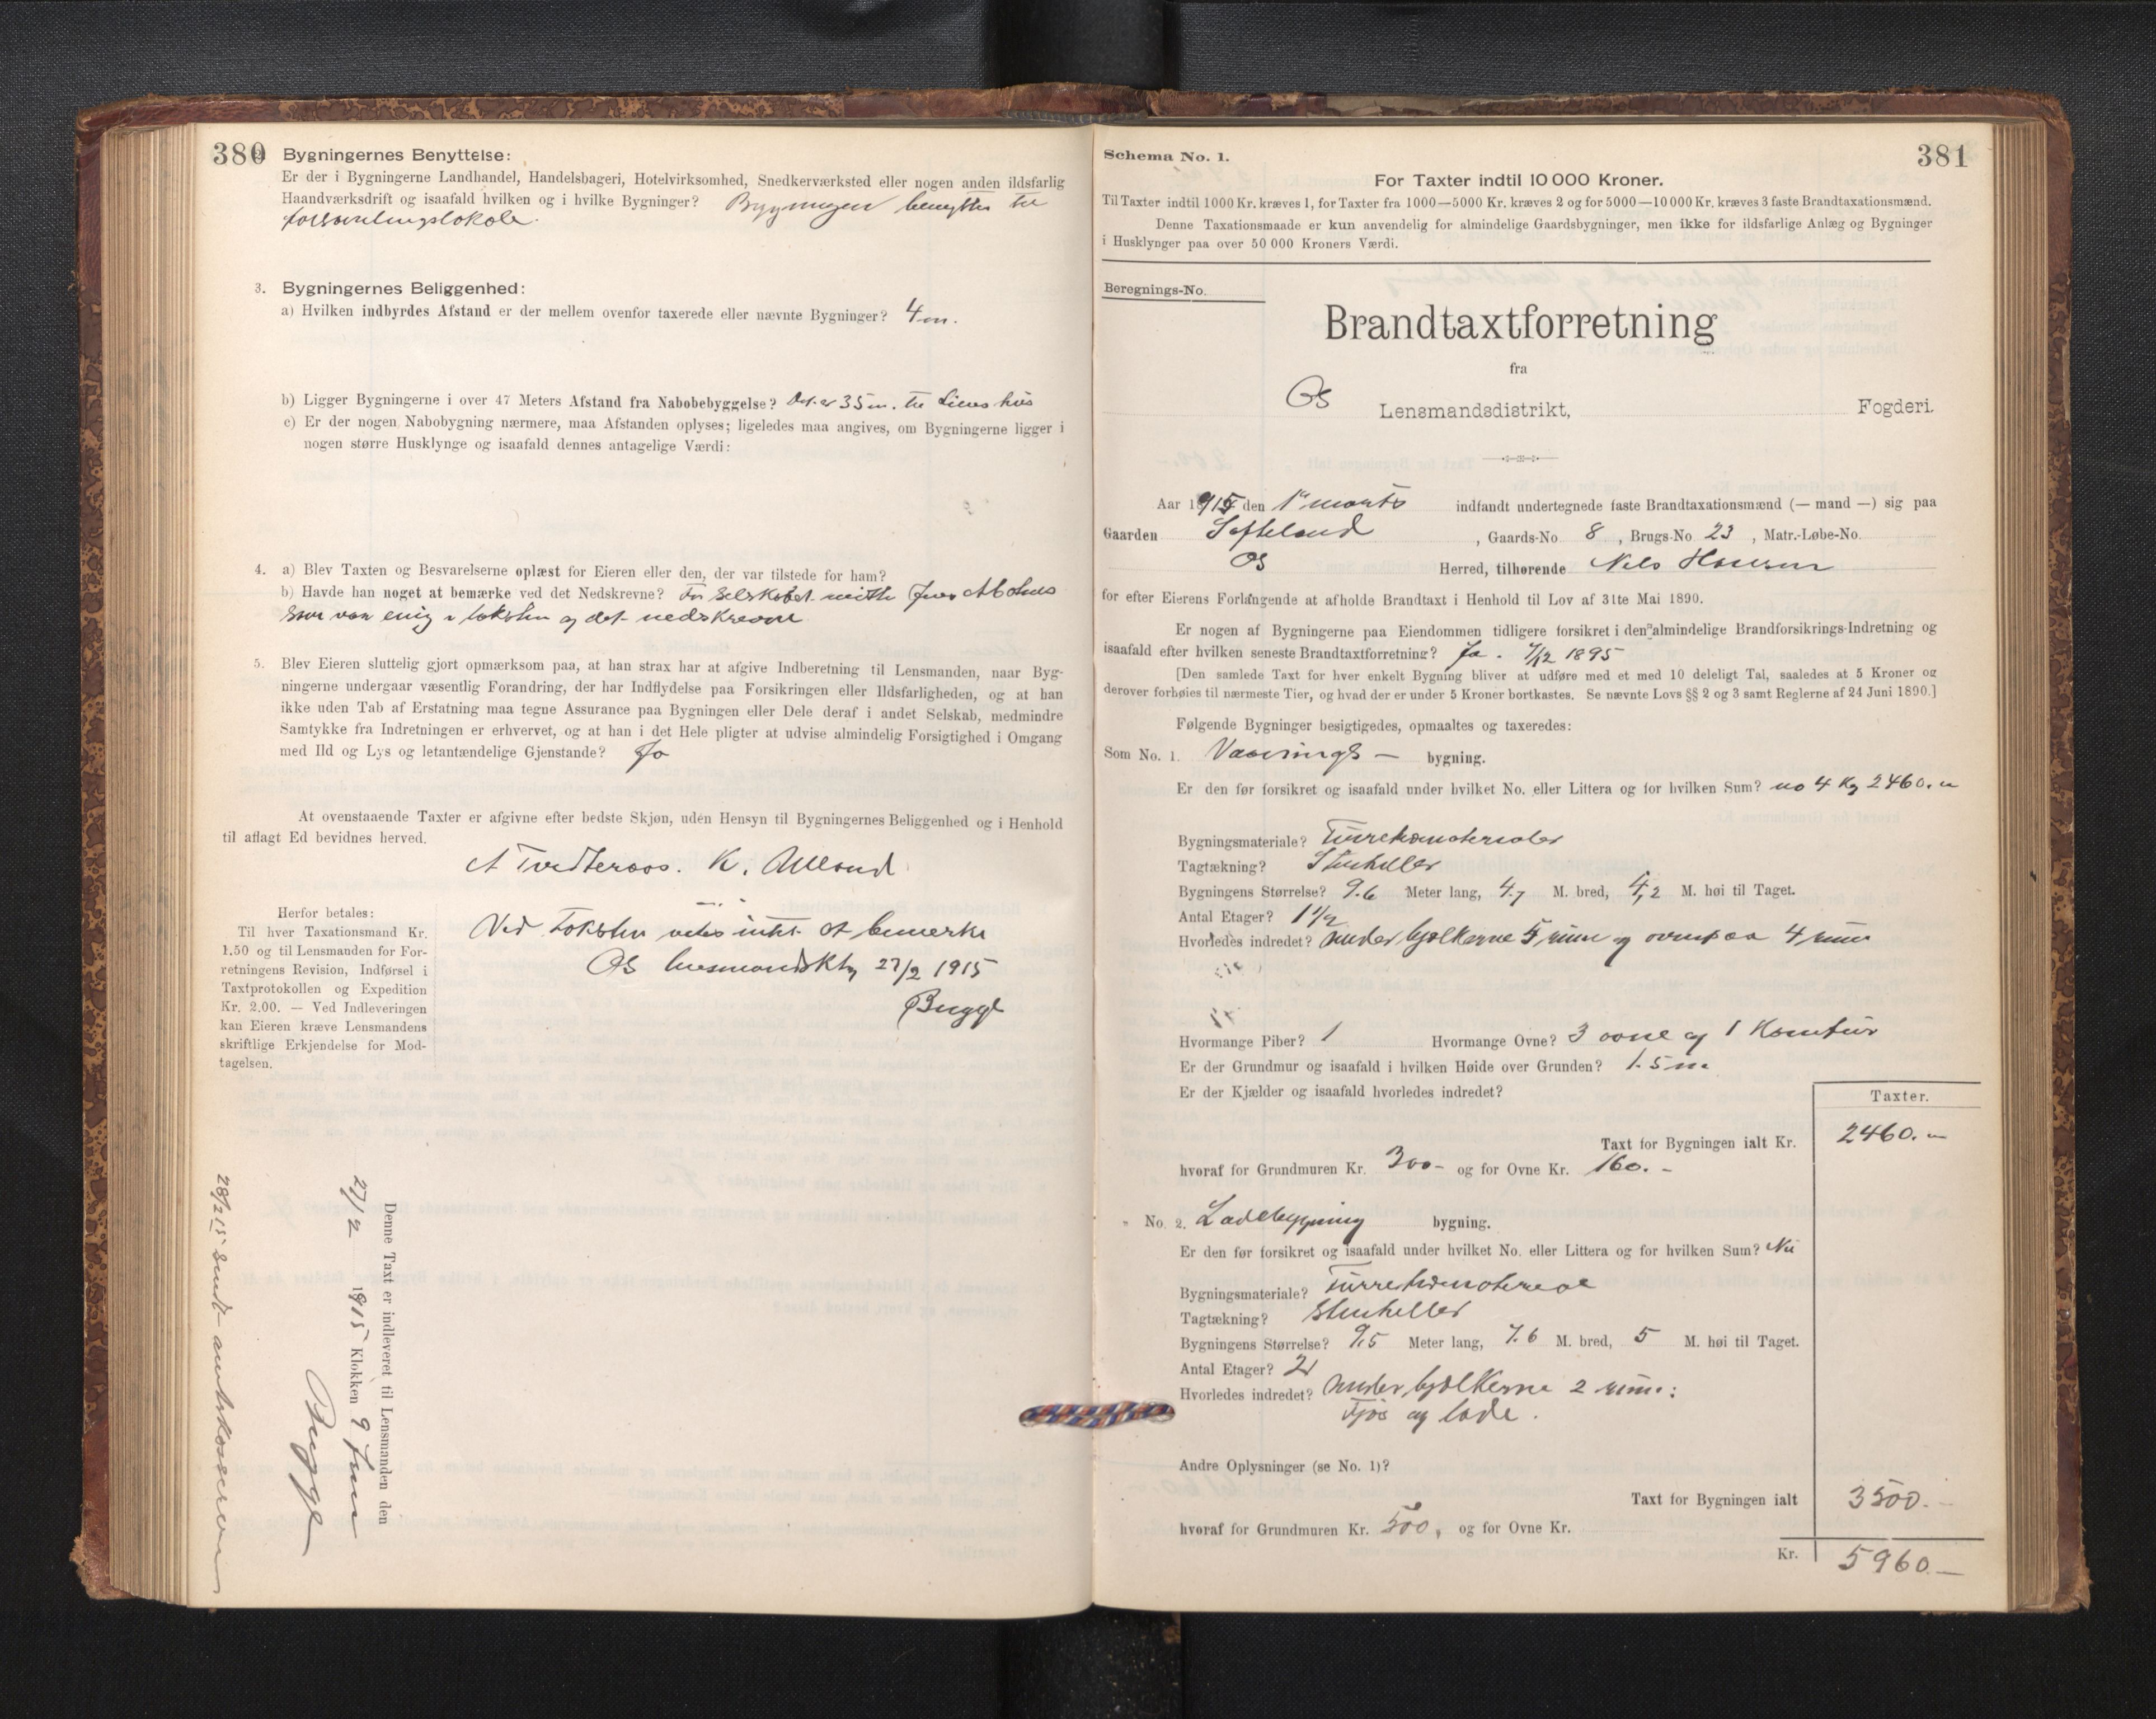 380
2. Bygningernes Benyttelse:
Er der i Bygningerne Landhandel, Handelsbageri, Hotelvirksomhed, Snedkerværksted eller nogen anden ildsfarlig
Haandværksdrift og isaafald hvilken og i hvilke Bygninger? Bygningen benyttes til
forsamlingslokale.
3. Bygningernes Beliggenhed:
a) Hvilken indbyrdes Afstand er der mellem ovenfor taxerede eller nævnte Bygninger? 4 m.
b) Ligger Bygningerne i over 47 Meters Afstand fra Nabobebyggelse? Det er 35 m. til Liens hus
c) Er der nogen Nabobygning nærmere, maa Afstanden oplyses; ligeledes maa angives, om Bygningerne ligger i
nogen større Husklynge og isaafald dennes antagelige Værdi:
4. a) Blev Taxten og Besvarelserne oplæst for Eieren eller den, der var tilstede for ham?
b) Havde han noget at bemærke ved det Nedskrevne? For selskabet mötte
som var enig i taksten og det nedskrevne
5. Blev Eieren sluttelig gjort opmærksom paa, at han strax har at afgive Indberetning til Lensmanden, naar Byg-
ningerne undergaar væsentlig Forandring, der har Indflydelse paa Forsikringen eller Ildsfarligheden, og at han
ikke uden Tab af Erstatning maa tegne Assurance paa Bygningen eller Dele deraf i andet Selskab, medmindre
Samtykke fra Indretningen er erhvervet, og at han i det Hele pligter at udvise almindelig Forsigtighed i Omgang
med Ild og Lys og letantændelige Gjenstande? Ja
At ovenstaaende Taxter er afgivne efter bedste Skjøn, uden Hensyn til Bygningernes Beliggenhed og i Henhold
til aflagt Ed bevidnes herved.
A Tvedteraas. K. Ulland
Herfor betales:
Til hver Taxationsmand Kr.
1.50 og til Lensmanden for For-
retningens Revision, Indførsel i
Taxtprotokollen og Expedition
Kr. 2.00. — Ved Indleveringen
kan Eieren kræve Lensmandens
skriftlige Erkjendelse for Mod-
tagelsen.
Ved taksten vides intet at bemerke
Os lensmandskt, 27/2 1915
Bugge
Denne Taxt er indleveret til Lensmanden den
27/2 1915 Klokken 9 fm
Bugge
28/2 15 sendt amtskasseren
381
Schema No. 1.
For Taxter indtil 10 000 Kroner.
Til Taxter indtil 1000 Kr. kræves 1, for Taxter fra 1000—5000 Kr. kræves 2 og for 5000—10 000 Kr. kræves 3 faste Brandtaxationsmænd.
Denne Taxationsmaade er kun anvendelig for almindelige Gaardsbygninger, men ikke for ildsfarlige Anlæg og Bygninger
i Husklynger paa over 50 000 Kroners Værdi.
Beregnings-No.
Brandtaxtforretning
fra
Os Lensmandsdistrikt, Fogderi.
Aar 1915 den 1ste marts indfandt undertegnede faste Brandtaxationsmænd (— mand —) sig paa
Gaarden Søfteland, Gaards-No 8, Brugs-No 23, Matr.-Løbe-No.
Os Herred, tilhørende Nels Hansen
for efter Eierens Forlangende at afholde Brandtaxt i Henhold til Lov af 31te Mai 1890.
Er nogen af Bygningerne paa Eiendommen tidligere forsikret i den almindelige Brandforsikrings-Indretning og
isaafald efter hvilken seneste Brandtaxtforretning? Ja. 7/12 1895
[Den samlede Taxt for hver enkelt Bygning bliver at udføre med et med 10 deleligt Tal, saaledes at 5 Kroner og
derover forhøies til nærmeste Tier, og hvad der er under 5 Kroner bortkastes. Se nævnte Lovs §§ 2 og 3 samt Reglerne af 24 Juni 1890.]
Følgende Bygninger besigtigedes, opmaaltes og taxeredes:
Som No. 1. Vaanings— bygning.
Er den før forsikret og isaafald under hvilket No. eller Littera og for hvilken Sum? no 4 Kr 2460.
Bygningsmateriale? Furretræmaterialer
Tagtækning? Stenheller
Bygningens Størrelse? 9.6 Meter lang, 4.7 M. bred, 4,2 M. høi til Taget.
Antal Etager? 1 1/2
Hvorledes indredet? under bjelkerne 5 rum og ovenpaa 4 rum
Hvormange Piber? 1 Hvormange Ovne? 3 ovne og 1 Komfur
Er der Grundmur og isaafald i hvilken Høide over Grunden? 1.5 m.
Er der Kjælder og isaafald hvorledes indredet?
Taxter.
Taxt for Bygningen ialt Kr. 2460.
hvoraf for Grundmuren Kr. 300- og for Ovne Kr. 160.-
" No. 2. Ladebygning bygning.
Er den før forsikret og isaafald under hvilket No. eller Littera og for hvilken Sum? Nei
Bygningsmateriale? Furretræmateriale
Tagtækning? Stenheller
Bygningens Størrelse? 9,5 Meter lang, 7.6 M. bred, 5 M. høi til Taget.
Antal Etager? 2
Hvorledes indredet? Under bjelkerne 2 rum:
Fjøs og lade.
Andre Oplysninger (se No. 1)?
Taxt for Bygningen ialt 3500.-
hvoraf for Grundmuren Kr. 500, og for Ovne Kr.
Kr. 5960.-